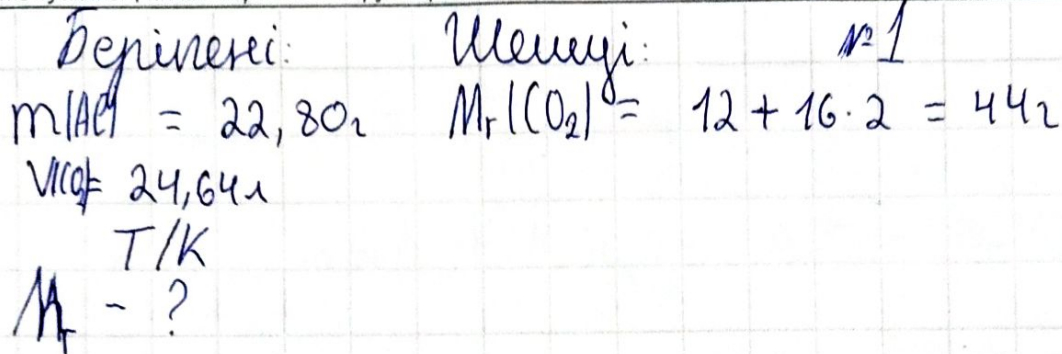 Берілгені: Шешуі: №1
m(AC) = 22,80г Mr(CO₂) = 12 + 16·2 = 44г
V(CO₂)= 24,64л
T/K
Mr - ?